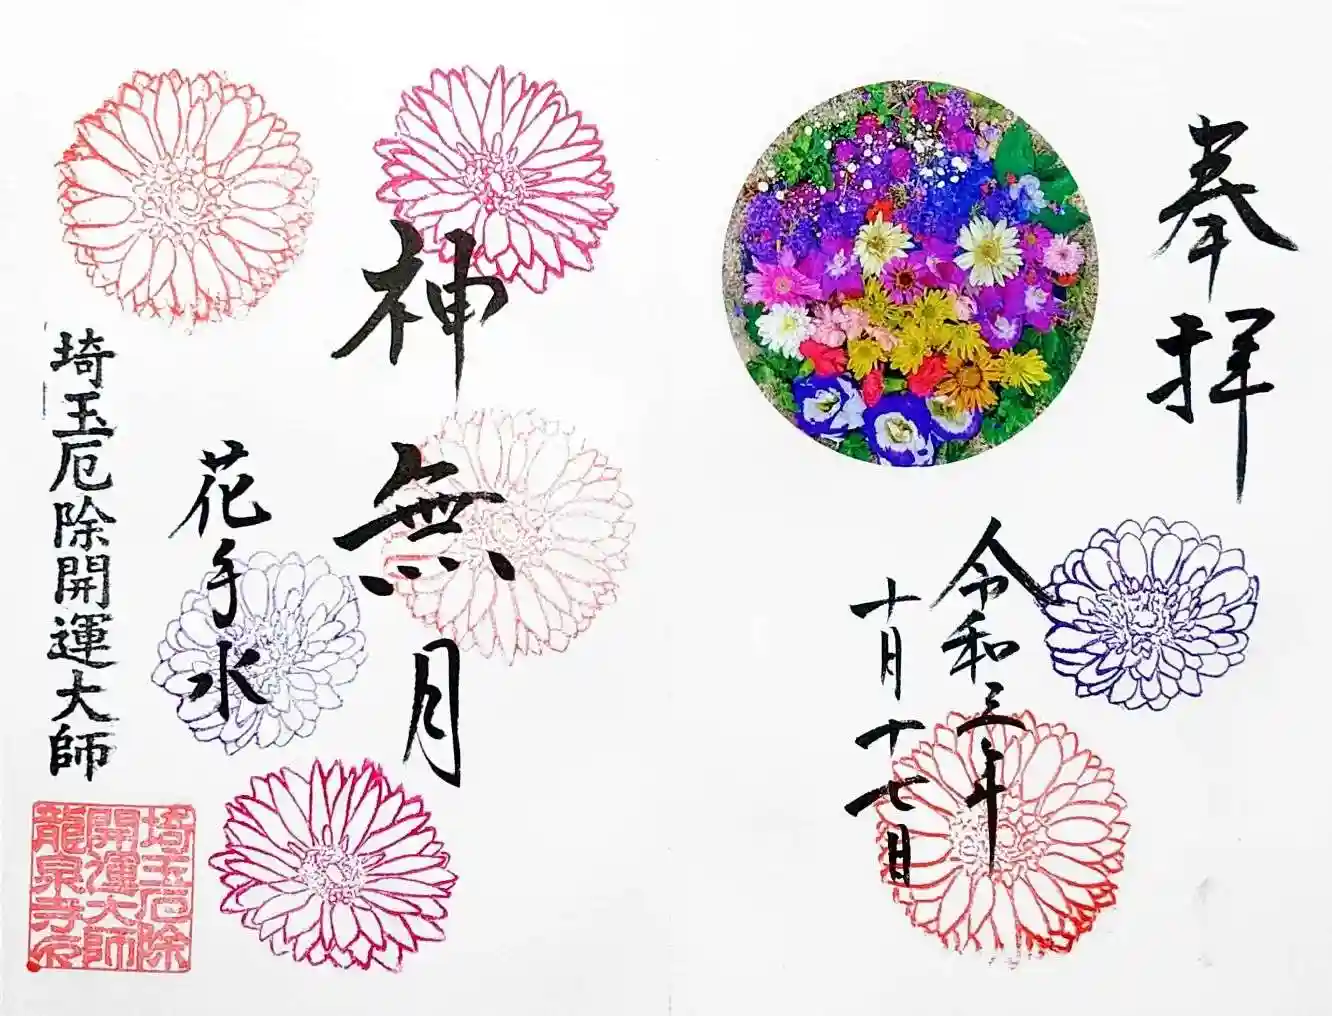 奉拝
令和三年
十月十七日
神無月
花手水
埼玉厄除開運大師
埼玉厄除
開運大師
龍泉寺印